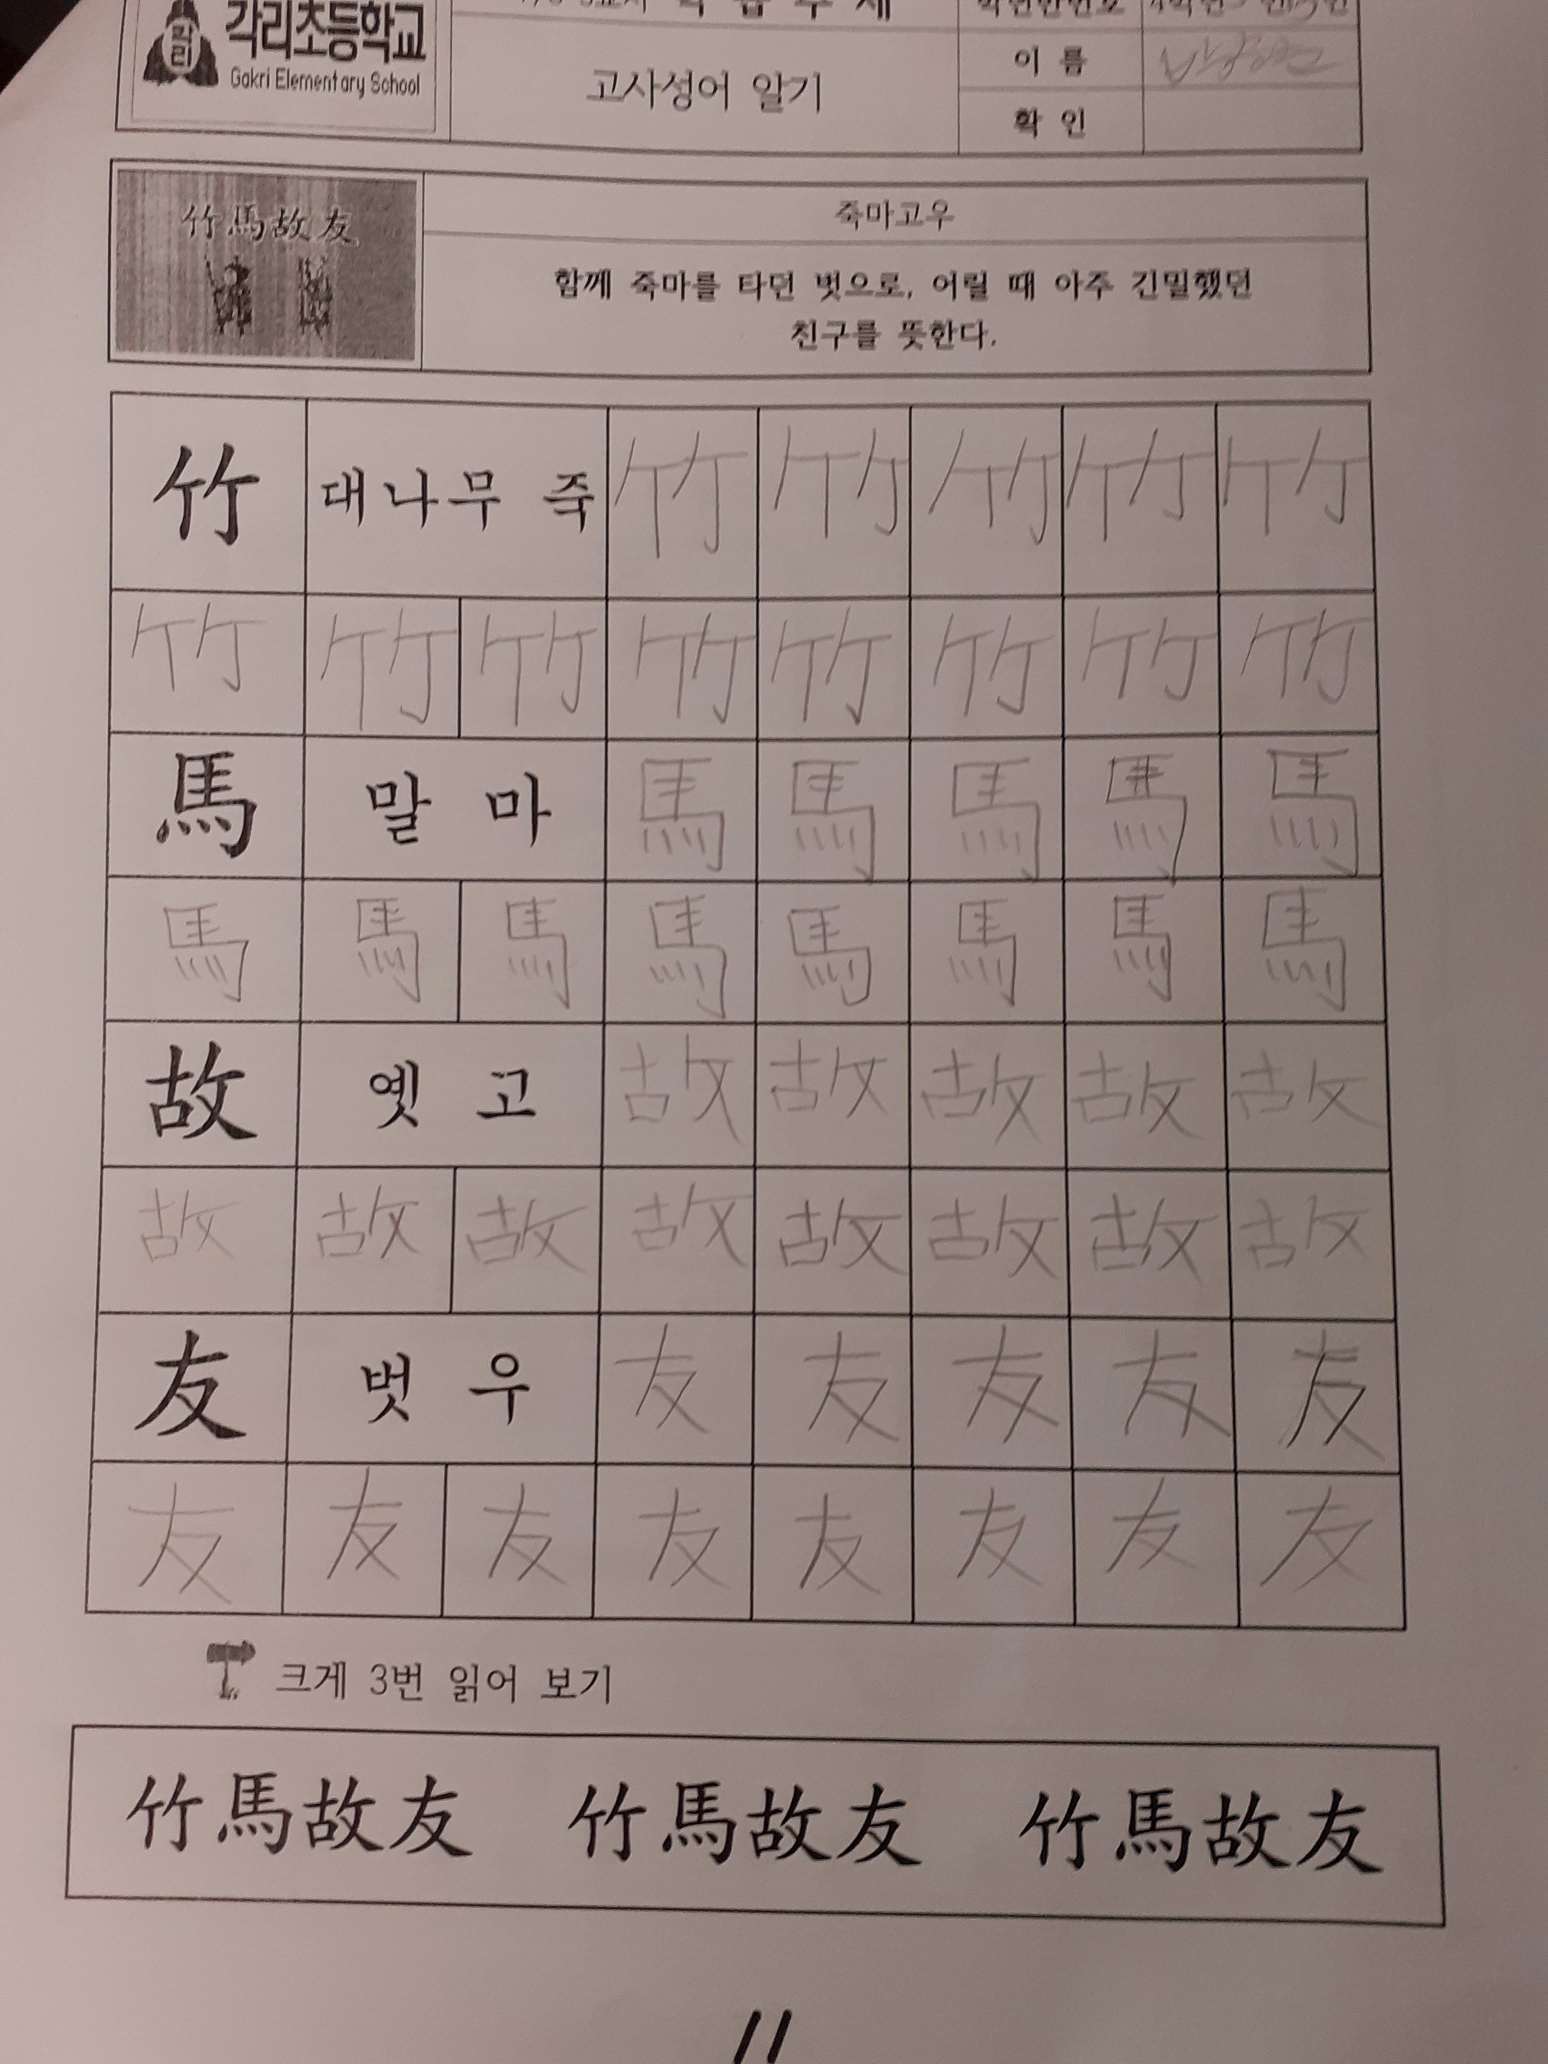 각리
각리초등학교
Gakri Elementary School
고사성어 알기
이 름
확 인
竹馬故友
죽마고우
함께 죽마를 타던 벗으로, 어릴 때 아주 긴밀했던
친구를 뜻한다.
竹 대나무 죽 竹 竹 竹 竹 竹
竹 竹 竹 竹 竹 竹 竹 竹
馬 말 마 馬 馬 馬 馬 馬
馬 馬 馬 馬 馬 馬 馬 馬
故 옛 고 故 故 故 故 故
故 故 故 故 故 故 故 故
友 벗 우 友 友 友 友 友
友 友 友 友 友 友 友 友
크게 3번 읽어 보기
竹馬故友 竹馬故友 竹馬故友
11